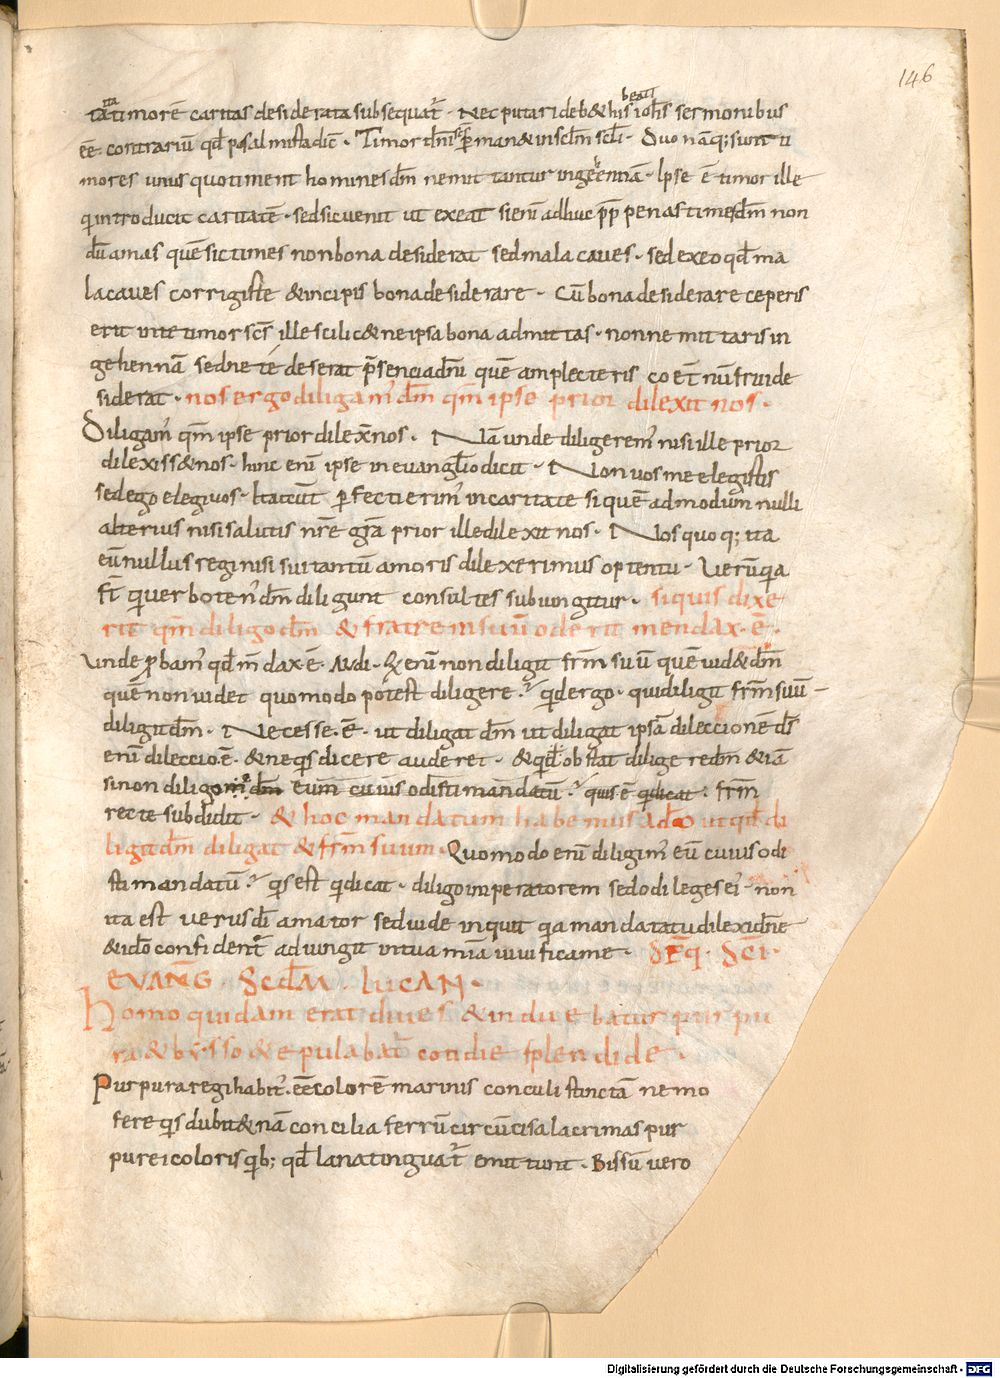 146
tanti morē caritas desiderata subsequat̄ · Nec putari deb& his beati ioh̄s sermonibus
eē contrariū qd̄ psalmista dic̄ · Timor dn̄i sc̄s p̄man& insclm̄ scli · Duo nāq; sunt ti
mores unus quo timent homines dm̄ ne mittantur ingehennā · Ipse ē timor ille
qui introducit caritatē · sed sic uenit ut exeat si enī adhuc pp̄ penas times dm̄ non
dū amas quē sic times non bona desiderat sed mala caues · sed ex eo qd̄ ma
la caues corrigis te & incipis bona desiderare · Cū bona desiderare ceperis
erit in te timor scs̄ ille scilic& ne ipsa bona admittas · non ne mittaris in
gehennā sed ne te deserat p̄sencia dn̄i quē amplecteris co et̄nū frui de
siderat · nos ergo diligam' dm̄ qm̄ ipse prior dilexit nos ·
Diligam' qm̄ ipse prior dilex̄ nos · Nā unde diligerem' nisi ille prior
dilexiss& nos · hinc enī ipse in euanḡlio dicit · Non uos me elegistis
sed ego elegi uos · perfecti erim' in caritate si quē admodum nulli
alterius nisi salutis nr̄e gr̄a prior ille dilexit nos · Nos quoq; ita
eū nullus regi nisi sui tantū amoris dilexerimus optentu · Uerū qia
st̄ qui uerbo ten' dm̄ diligunt consultes subiungitur · siquis dixe
rit qm̄ diligo dm̄ & fratrem suū oderit mendax · ē ·
Unde p̄bam' qd̄ mdax · ē · Audi · Q enī non diligit frm̄ suū quē uid& dm̄
quē non uidet quomodo potest diligere ? qd ergo · qui diligit frm̄ suū –
diligit dm̄ · Necesse · ē · ut diligat dm̄ ut diligat ipsā dileccionē ds̄
enī dileccio · ē · & neq̄s dicere auderet · & qd̄ obstat diligere dm̄ & iā
si non diligo dm̄ eum cuius odisti mandatū ? quis ē qi dicat · frm̄
recte subdidit · & hoc mandatum habemus a do ut qd̄ di
ligit dm̄ diligat & frm̄ suum · Quomodo enī diligim' eū cuius odi
sti mandatū ? q̄s est qi dicat · diligo imperatorem sed odi leges ei' · non
ita est uerus dī amator sed uide inquit qia mandata tu dilexi dn̄e
& ido confident̄ adiungit in tua mīa uiuifica me ·
EVANḠ · Scdm̄ · LVCAN ·
Homo quidam erat diues & induebatur purpu
ra & bysso & epulabat̄ cotidie splendide ·
Purpura regi habit' · eē colorē marinis conculis tinctā nemo
fere q̄s dubit& nā concilia ferrū circūcisa lacrimas pur
purei coloris qib; qd̄ lana tinguat̄ emittunt · Bissū uero
Digitalisierung gefördert durch die Deutsche Forschungsgemeinschaft - DFG